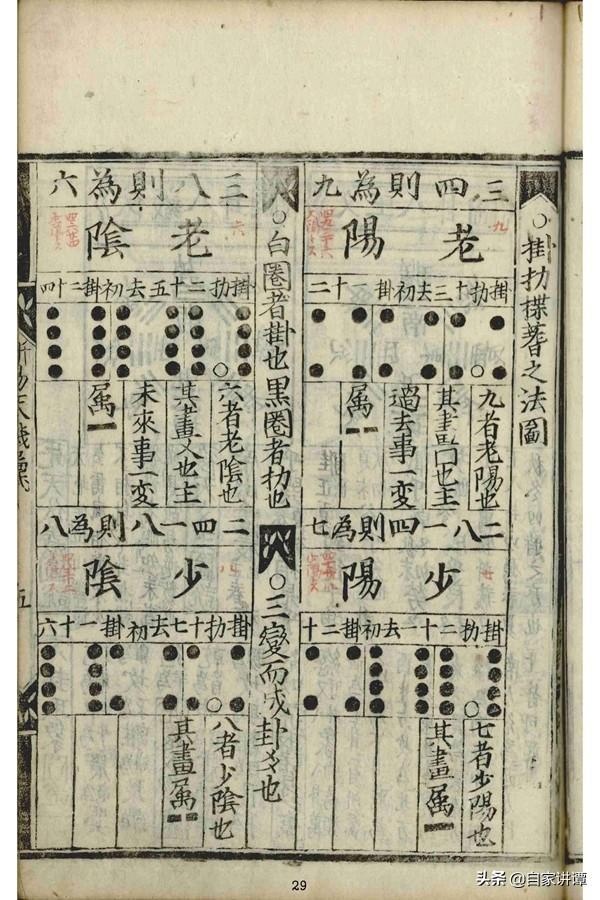 ○掛扐揲蓍之法圖
三四則為九
九
老陽
掛扐十三去初掛一十二
九者老陽也
其畫囗也主
過去事一變
屬
二八一四則為七
七
少陽
掛扐二十一去初掛二十
七者少陽也
其畫屬
○白圈者掛也黑圈者扐也
○三變而成卦爻也
三八則為六
六
老陰
掛扐二十五去初掛二十四
六者老陰也
其畫乂也主
未來事一變
屬
二四一八則為八
八
少陰
掛扐十七去初掛一十六
八者少陰也
其畫屬
五
29
头条 @自家讲谭